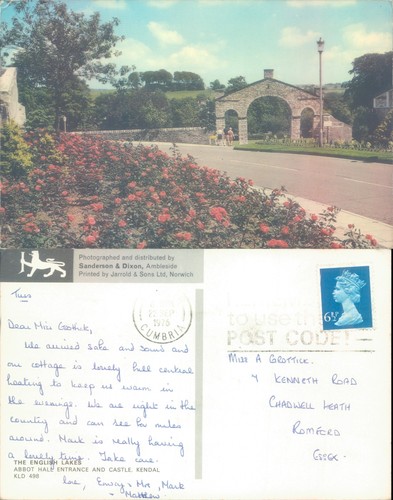 Photographed and distributed by
Sanderson & Dixon, Ambleside
Printed by Jarrold & Sons Ltd, Norwich
Tues
1976
CUMBRIA
6½P
to use the
POST CODE!
Dear Miss Grottick,
We arrived safe and sound and
our cottage is lovely full central
heating to keep us warm in
the evenings. We are right in the
country and can see for miles
around. Mark is really having
a lovely time. Take care.
love, Mark
- Matthew.
THE ENGLISH LAKES
ABBOT HALL ENTRANCE AND CASTLE, KENDAL
KLD 498
MISS A GROTTICK.
4 KENNETH ROAD
CHADWELL HEATH
ROMFORD
ESSEX.